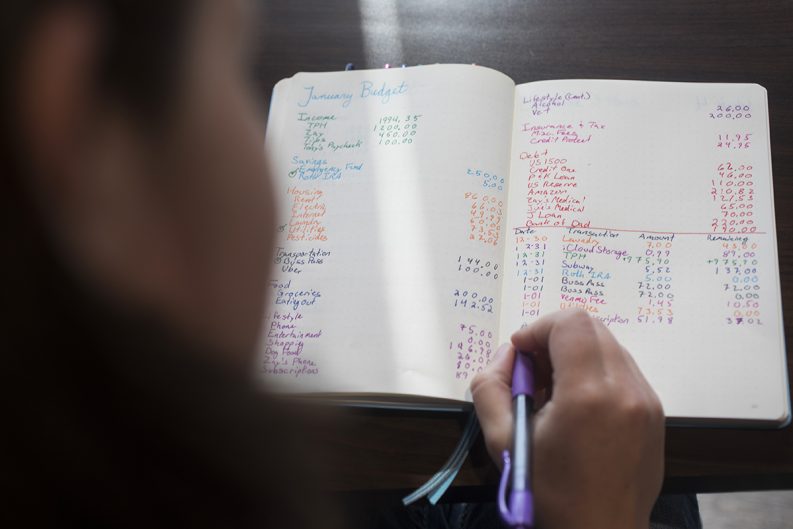 January Budget
Income 1994.35
TPH 1200.00
Zay 450.00
Tips 100.00
Tony's Paycheck
Savings
Emergency Fund 250.00
Roth IRA 5.00
Housing
Rent 860.00
Electric
Internet 49.99
Laundry
Utilities 73.53
Pesticides
Transportation
Buss Pass 144.00
Uber 100.00
Food
Groceries 200.00
Eating out 142.52
Lifestyle
Phone 75.00
Entertainment 0.00
Shopping
Dog Food
Zay's Phone
Subscriptions
Lifestyle (Cont.)
Alcohol 26.00
Vet 200.00
Insurance + Tax
Misc. Fees 11.95
Credit Protect 24.95
Debt
US 1500
Credit One 62.00
P&K Loan 46.00
US Reserve 110.00
Amazon 210.82
Zay's Medical
Jye's Medical 65.00
J Loan 70.00
Bank of Dad 220.00
Date Transaction Amount Remaining
12-30 Laundry 7.00
12-31 Cloud Storage 0.99 89.00
12-31 TPH +775.90 +775.90
12-31 Subway 5.52 137.00
12-31 Roth IRA 5.00 0.00
1-01 Buss Pass 72.00 72.00
1-01 Buss Pass 72.00 0.00
1-01 Venmo Fee 1.45 10.50
1-01 Utilities 73.53 0.00
1-01 51.98 37.02